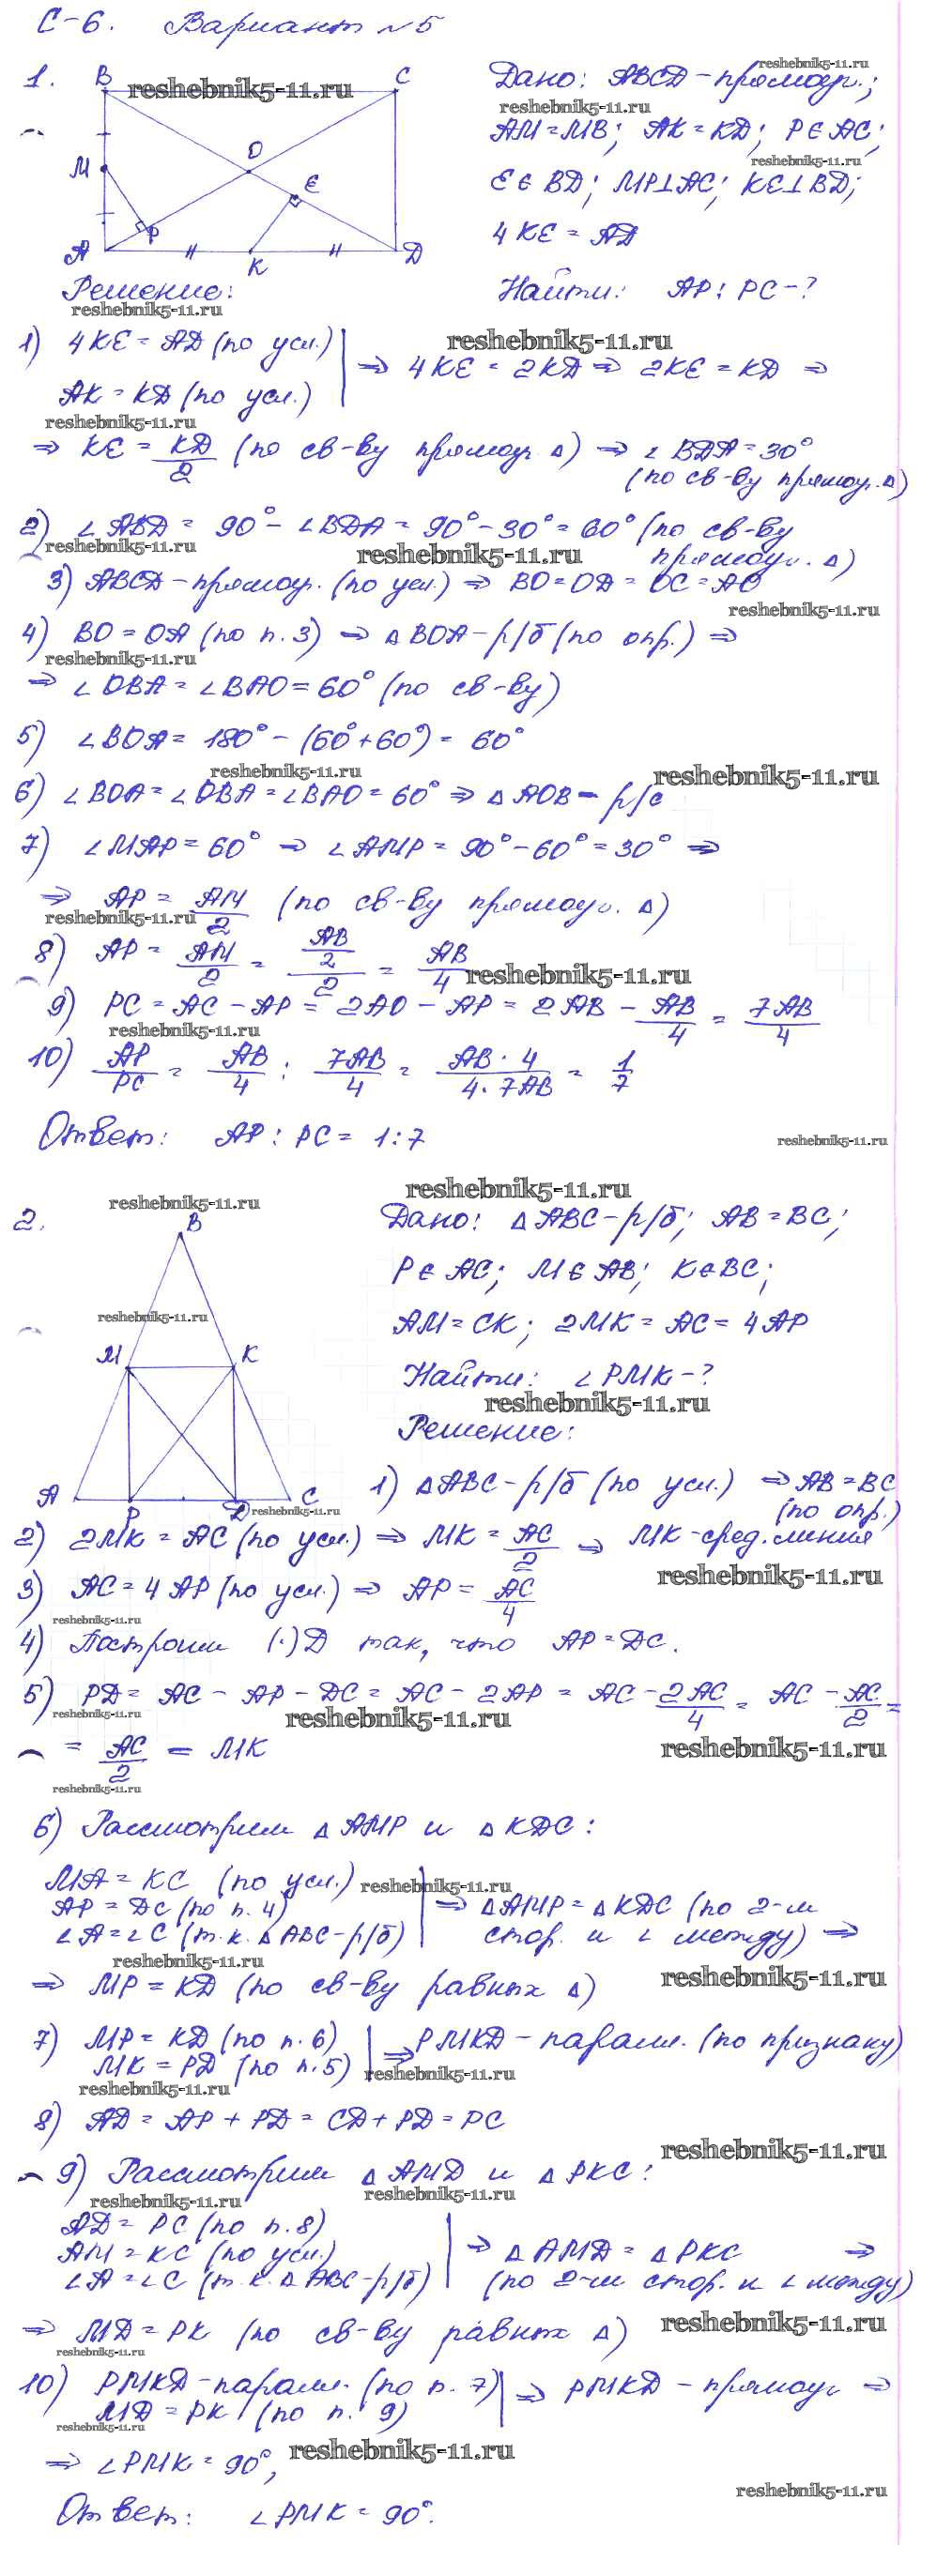 С-6. Вариант №5
1. B C
reshebnik5-11.ru
M O E
A P K D
Дано: ABCD - прямоуг.;
AM = MB; AK = KD; P ∈ AC;
E ∈ BD; MP ⊥ AC; KE ⊥ BD;
4KE = AD
Найти: AP : PC - ?
Решение:
1) 4KE = AD (по усл.)
AK = KD (по усл.)
=> 4KE = 2KD => 2KE = KD =>
=> KE = KD/2 (по св-ву прямоуг. Δ) => ∠BDA = 30°
(по св-ву прямоуг. Δ)
2) ∠ABD = 90° - ∠BDA = 90° - 30° = 60° (по св-ву
прямоуг. Δ)
3) ABCD - прямоуг. (по усл.) => BO = OD = OC = AO
4) BO = OA (по п. 3) => ΔBOA - р/б (по опр.) =>
=> ∠OBA = ∠BAO = 60° (по св-ву)
5) ∠BOA = 180° - (60° + 60°) = 60°
6) ∠BOA = ∠OBA = ∠BAO = 60° => ΔAOB - р/с
7) ∠MAP = 60° => ∠AMP = 90° - 60° = 30° =>
=> AP = AM/2 (по св-ву прямоуг. Δ)
8) AP = AM/2 = (AB/2)/2 = AB/4
9) PC = AC - AP = 2AO - AP = 2AB - AB/4 = 7AB/4
10) AP/PC = AB/4 : 7AB/4 = AB · 4/4 · 7AB = 1/7
Ответ: AP : PC = 1:7
2. B
M K
A P D C
Дано: ΔABC - р/б; AB = BC;
P ∈ AC; M ∈ AB; K ∈ BC;
AM = CK; 2MK = AC = 4AP
Найти: ∠PMK - ?
Решение:
1) ΔABC - р/б (по усл.) => AB = BC
(по опр.)
2) 2MK = AC (по усл.) => MK = AC/2 => MK - сред. линия
3) AC = 4AP (по усл.) => AP = AC/4
4) Построим (·) D так, что AP = DC.
5) PD = AC - AP - DC = AC - 2AP = AC - 2AC/4 = AC - AC/2 =
= AC/2 = MK
6) Рассмотрим ΔAMP и ΔKDC:
MA = KC (по усл.)
AP = DC (по п. 4)
∠A = ∠C (т.к. ΔABC - р/б)
=> ΔAMP = ΔKDC (по 2-м
стор. и ∠ между) =>
=> MP = KD (по св-ву равных Δ)
7) MP = KD (по п. 6)
MK = PD (по п. 5)
=> PMKD - паралл. (по признаку)
8) AD = AP + PD = CD + PD = PC
9) Рассмотрим ΔAMD и ΔPKC:
AD = PC (по п. 8)
AM = KC (по усл.)
∠A = ∠C (т.к. ΔABC - р/б)
=> ΔAMD = ΔPKC =>
(по 2-м стор. и ∠ между)
=> MD = PK (по св-ву равных Δ)
10) PMKD - паралл. (по п. 7)
MD = PK (по п. 9)
=> PMKD - прямоуг =>
=> ∠PMK = 90°,
Ответ: ∠PMK = 90°.
reshebnik5-11.ru